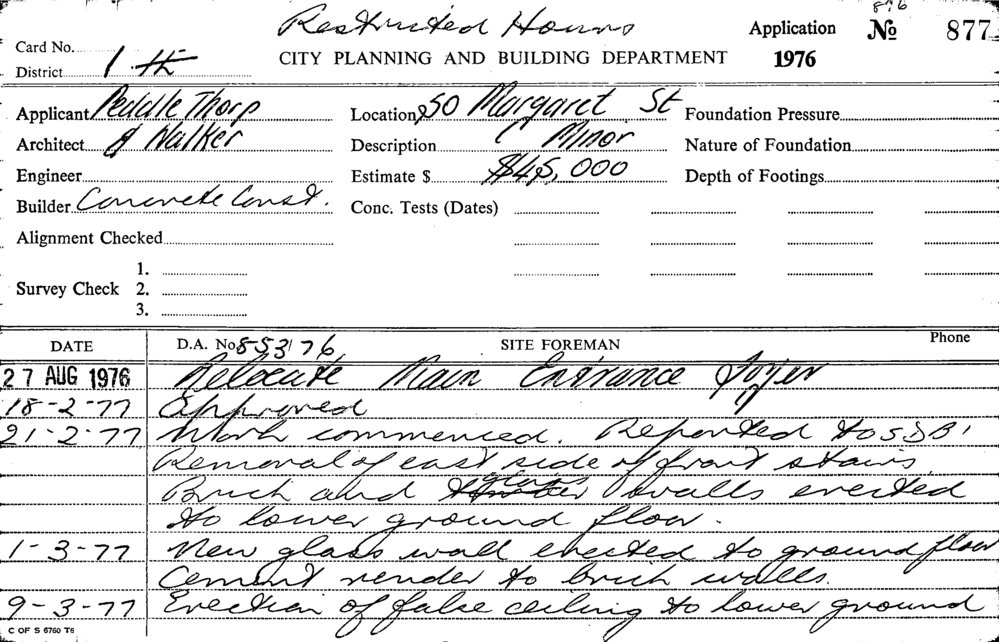 Restricted Hours
876
Application No 877
Card No.
CITY PLANNING AND BUILDING DEPARTMENT 1976
District 1 th
Applicant Peddle Thorp Location 50 Margaret St Foundation Pressure
Architect & Walker Description Minor Nature of Foundation
Engineer Estimate $ $45,000 Depth of Footings
Builder Concrete Const. Conc. Tests (Dates)
Alignment Checked
1.
Survey Check 2.
3.
DATE D.A. No 853/76 SITE FOREMAN Phone
27 AUG 1976 Relocate Main Entrance Foyer
18-2-77 Approved
21-2-77 Work commenced. Reported to SDBI
Removal of east side of front stairs.
Brick and glass walls erected
to lower ground floor.
1-3-77 New glass wall erected to ground floor
Cement render to brick walls.
9-3-77 Erection of false ceiling to lower ground
C OF S 6760 T6